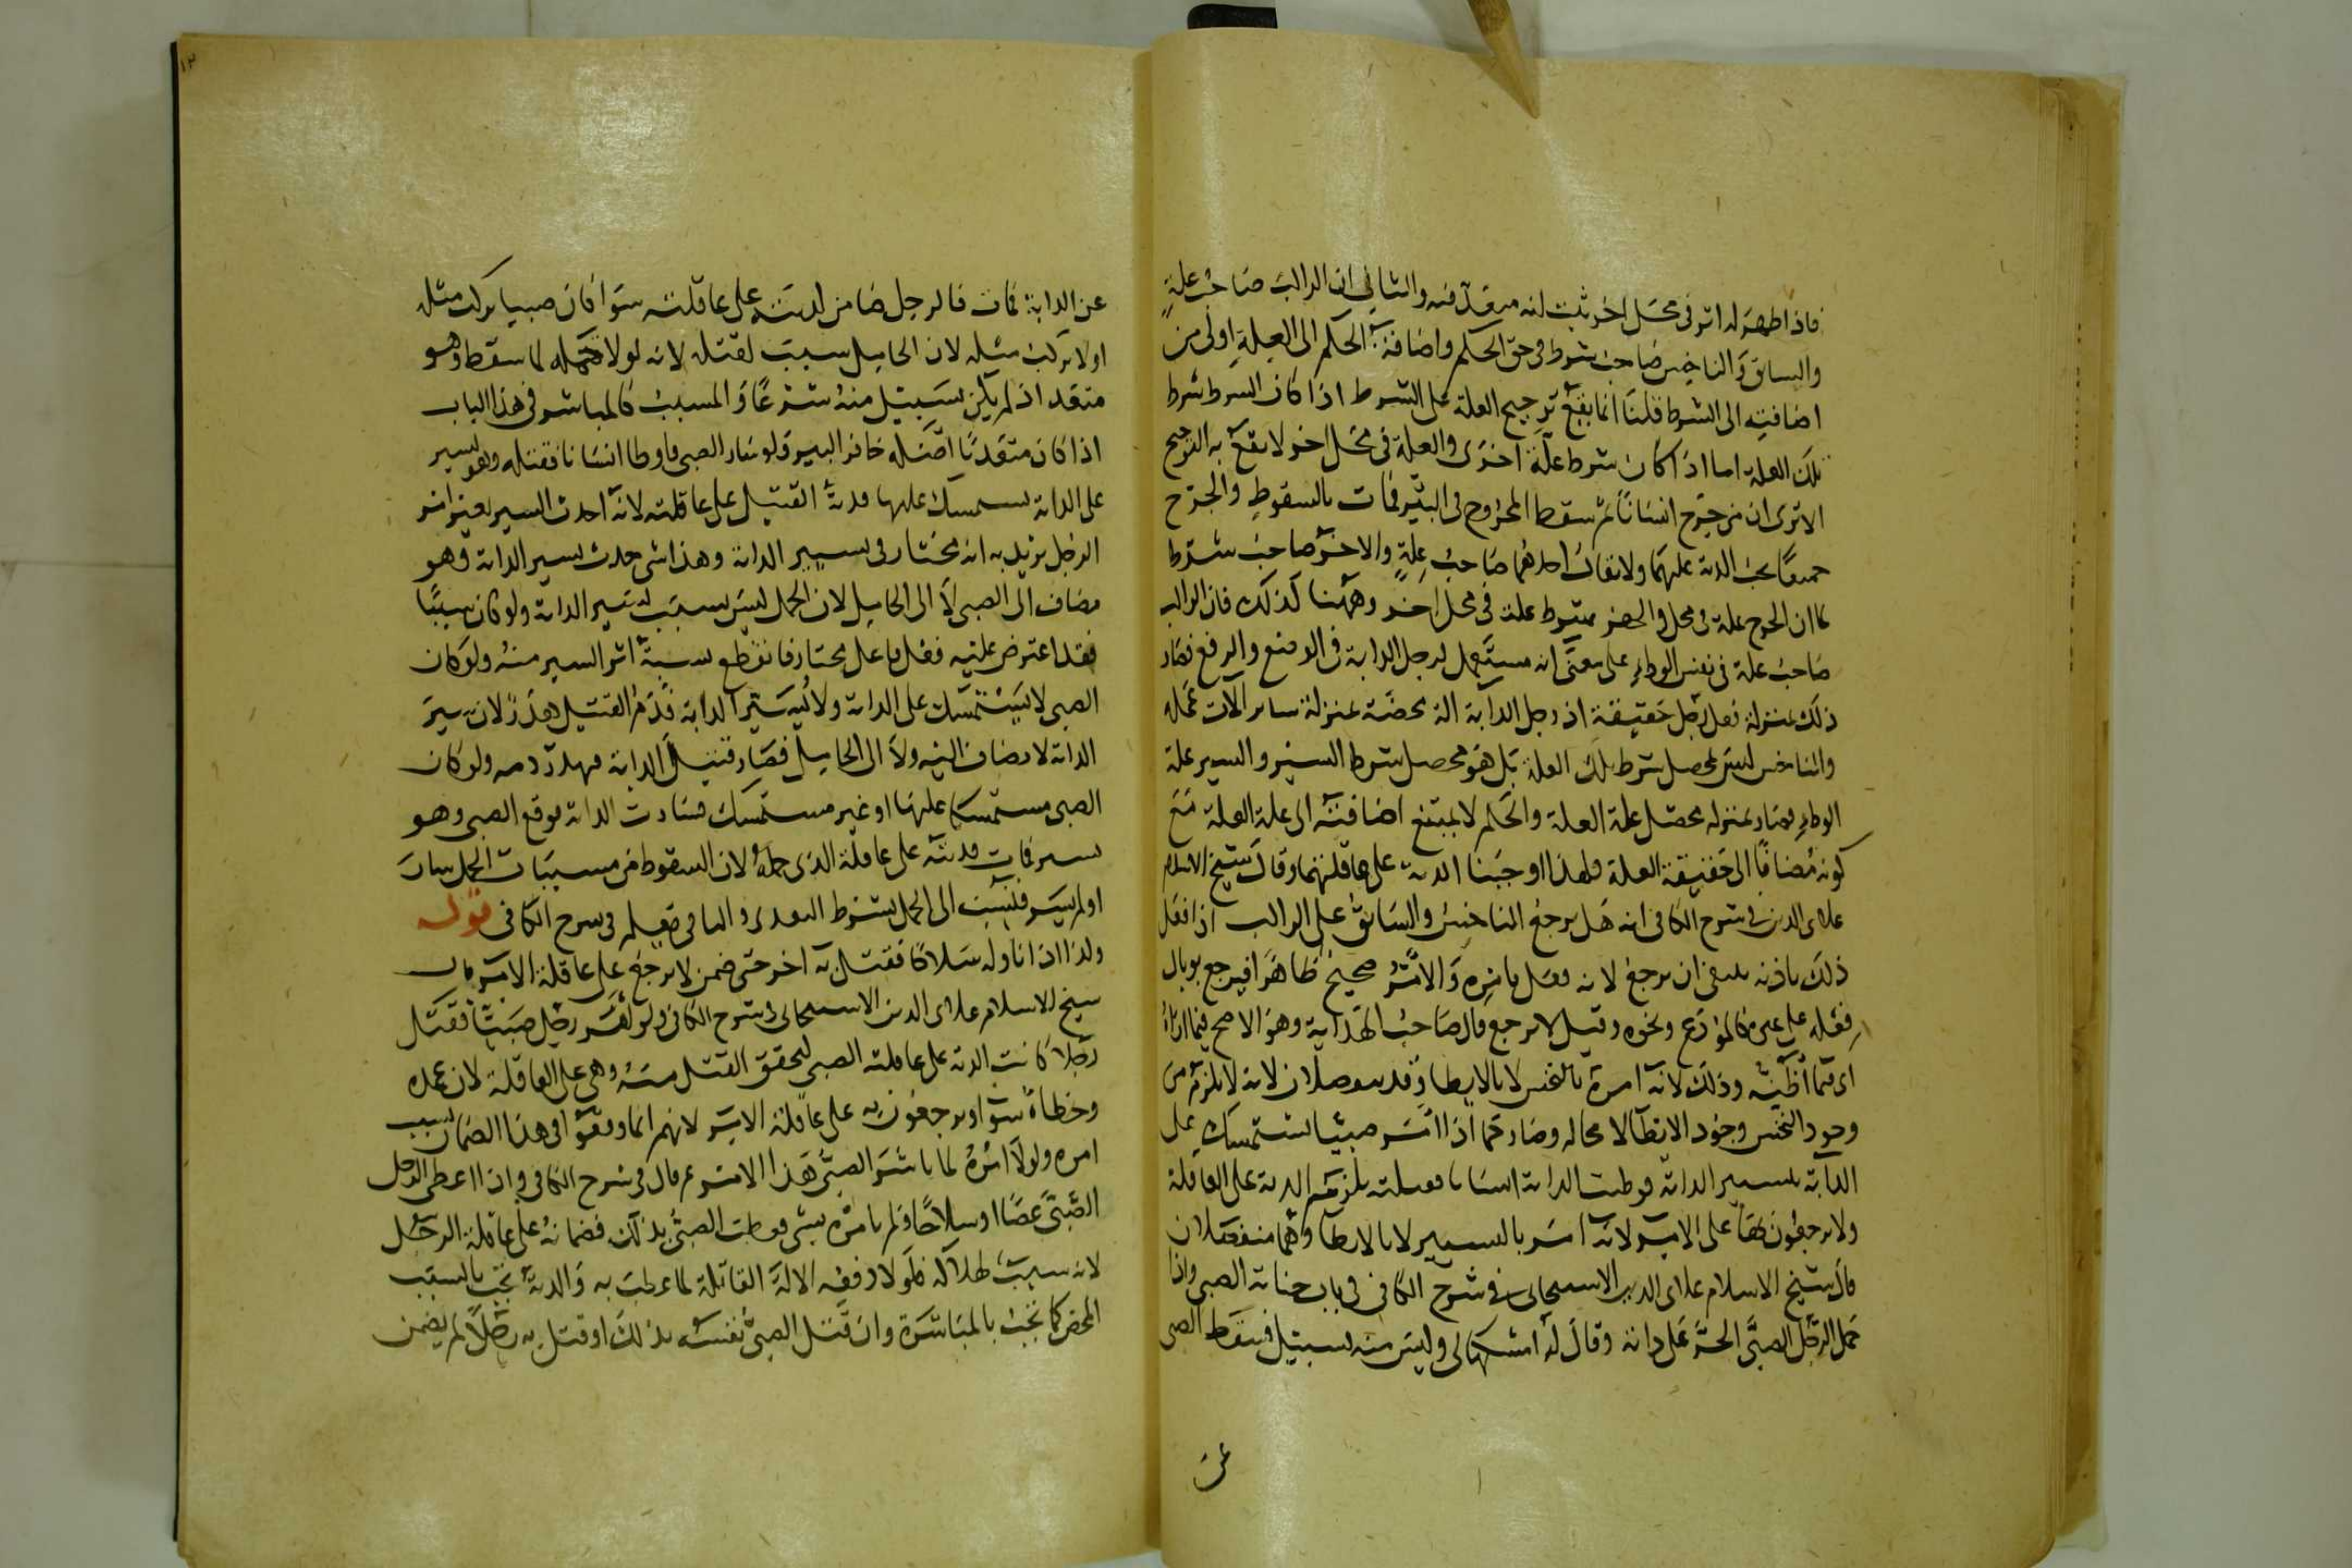 فاذا ظهر له اثر فى محل اخر ثبت انه متعد فيه والثانى ان الراكب صاحب علة
والسائق والناخس صاحب شرط فى حق الحكم واضافة الحكم الى العلة اولى من
اضافته الى الشرط قلنا انما يقع ترجيح العلة على الشرط اذا كان الشرط شرط
تلك العلة اما اذا كان شرط علة اخرى والعلة فى محل اخر لا يقع به الترجيح
الا ترى ان من جرح انسانا ثم سقط المجروح فى البئر فمات بالسقوط والجرح
جميعا يجب الدية عليهما ولا يقال احدهما صاحب علة والاخر صاحب شرط
كما ان الجرح علة فى محل والحفر شرط علة فى محل اخر وههنا كذلك فان الراكب
صاحب علة فى نفس الوطء على معنى انه مستعمل لرجل الدابة فى الوضع والرفع فصار
ذلك بمنزلة فعل رجل حقيقة اذ رجل الدابة الة محضة بمنزلة سائر الات عمله
والناخس ليس بمحصل شرط تلك العلة بل هو محصل شرط السير والسير علة
الوطء فصار بمنزله محصل علة العلة والحكم لا يمتنع اضافته الى علة العلة مع
كونه مضافا الى حقيقة العلة فلهذا اوجبنا الدية على عاقلتهما وقال شيخ الاسلام
علاى الدين فى شرح الكافى انه هل يرجع الناخس والسائق على الراكب اذا فعل
ذلك باذنه ينبغى ان يرجع لانه فعل بامره والامر صحيح ظاهرا فيرجع بوبال
فعله على غيره كالمودع ونحوه وقيل لا يرجع قال صاحب الهداية وهو الاصح فيما اراه
اى فيما اظنه وذلك لانه امره بالنخس لا بالايطا وقد ينفصلان لانه لا يلزم من
وجود النخس وجود الايطا لا محاله وصار كما اذا امر صبيا يستمسك على
الدابة بتسيير الدابة فوطئت الدابة انسانا فقتلته يلزمهم الدية على العاقلة
ولا يرجعون بها على الامر لانه امر بالتسيير لا بالايطا وهما منفصلان
قال شيخ الاسلام علاى الدين الاسبيجابى فى شرح الكافى فى باب جناية الصبى واذا
حمل الرجل الصبى الحر على دابة وقال له امسكها لى وليس منه بسبيل فسقط الصبى
عن
عن الدابة فمات فالرجل ضامن لديته على عاقلته سوا كان صبيا يركب مثله
او لا يركب مثله لان الحامل سبب لقتله لانه لولا حمله لما سقط وهو
متعد اذ لم يكن بسبيل منه شرعا والمسبب كالمباشر فى هذا الباب
اذا كان متعديا اصله حافر البير ولو سار الصبى فاوطا انسانا فقتله وهو يسير
على الدابة يستمسك عليها فدية القتيل على عاقلته لانه احدث السير بغير امر
الرجل يريد به انه مختار فى تسيير الدابة وهذا شى حدث بسير الدابة وهو
مضاف الى الصبى لا الى الحامل لان الحمل ليس بسبب لتسيير الدابة ولو كان سببا
فقد اعترض عليه فعل فاعل مختار فانقطع نسبة اثر السير منه ولو كان
الصبى لا يستمسك على الدابة ولا يسير الدابة فدم القتيل هدر لان سير
الدابة لا يضاف اليه ولا الى الحامل فصار قتيل الدابة فهدر دمه ولو كان
الصبى مستمسكا عليها او غير مستمسك فسارت الدابة فوقع الصبى وهو
يسير فمات فديته على عاقلة الذى حمله لان السقوط من مسببات الحمل سارت
او لم يسر فلنسب الى الحمل بشرط التعدى والباقى يعلم فى شرح الكافى قوله
ولذا اذا ناوله سلاحا فقتل به اخر حتى ضمن لا يرجع على عاقلة الامر قال
شيخ الاسلام علاى الدين الاسبيجابى فى شرح الكافى ولو امر رجل صبيا فقتل
رجلا كانت الدية على عاقلة الصبى لتحقق القتل منه وهى على العاقلة لان عمده
وخطاه سوا ويرجعون به على عاقلة الامر لانهم انما وقعوا فى هذا الضمان بسبب
امره ولولا امره لما باشر الصبى هذا الامر ثم قال فى شرح الكافى واذا اعطى الرجل
الصبى عصا او سلاحا ولم يامره بشى فعطب الصبى بذلك فضمانه على عاقلة الرجل
لانه سبب هلاكه فلولا دفعه الالة القاتلة لما عطب به والدية تجب بالسبب
المحض كما تجب بالمباشرة وان قتل الصبى نفسه بذلك او قتل به رجلا لم يضمن